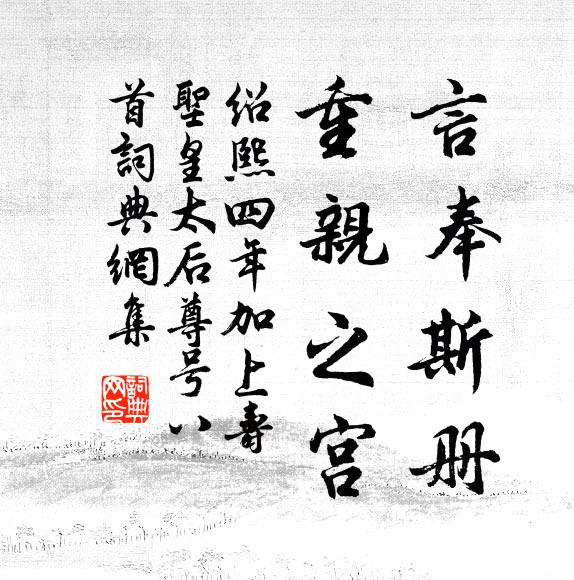 言奉斯册
重親之宫
绍熙四年加上壽
聖皇太后尊号八
首詞典網集
詞典网印